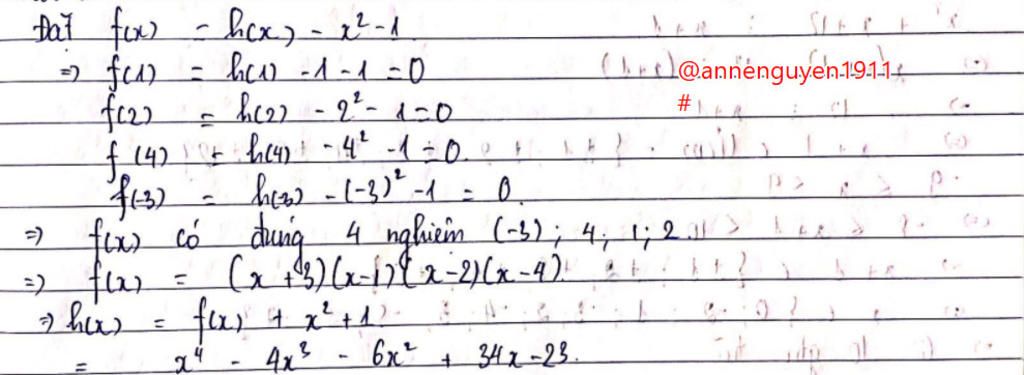 Đặt f(x) = h(x) - x² - 1.
⇒ f(1) = h(1) - 1 - 1 = 0
@annenguyen1911
#
f(2) = h(2) - 2² - 1 = 0
f(4) = h(4) - 4² - 1 = 0.
f(-3) = h(-3) - (-3)² - 1 = 0.
⇒ f(x) có đúng 4 nghiệm (-3); 4; 1; 2.
⇒ f(x) = (x+3)(x-1)(x-2)(x-4).
⇒ h(x) = f(x) + x² + 1.
= x⁴ - 4x³ - 6x² + 34x - 23.